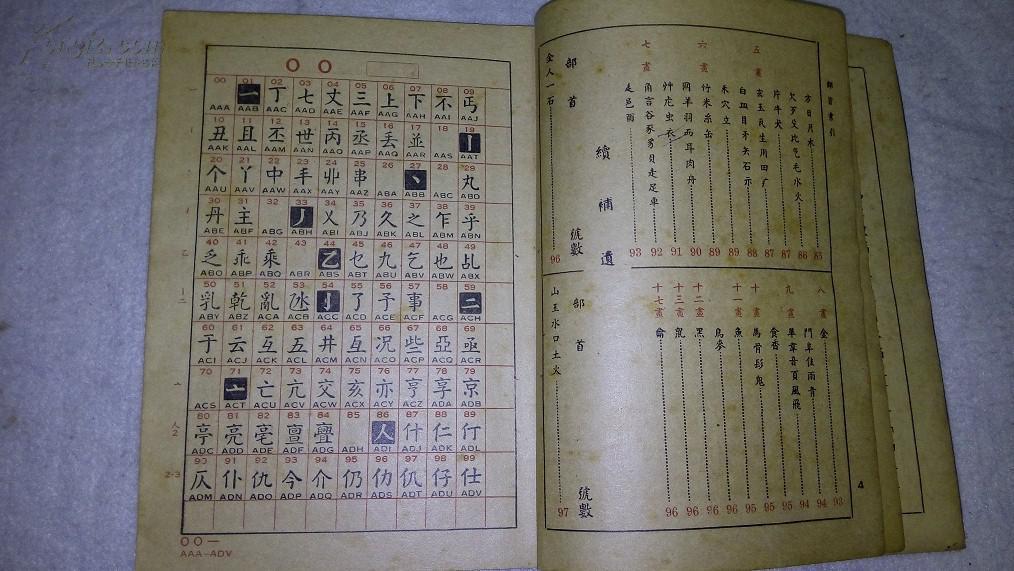 OO
00 01 02 03 04 05 06 07 08 09
一 丁 七 丈 三 上 下 不 丐
AAA AAB AAC AAD AAE AAF AAG AAH AAI AAJ
10 11 12 13 14 15 16 17 18 19
丑 且 丕 世 丙 丞 丢 並 丨
AAK AAL AAM AAN AAO AAP AAQ AAR AAS AAT
20 21 22 23 24 25 26 27 28 29
个 丫 中 丰 丱 串 丶 丸
AAU AAV AAW AAX AAY AAZ ABA ABB ABC ABD
30 31 32 33 34 35 36 37 38 39
丹 主 丿 乂 乃 久 之 乍 乎
ABE ABF ABG ABH ABI ABJ ABK ABL ABM ABN
40 41 42 43 44 45 46 47 48 49
乏 乖 乘 乙 乜 九 乞 也 乩
ABO ABP ABQ ABR ABS ABT ABU ABV ABW ABX
50 51 52 53 54 55 56 57 58 59
乳 乾 亂 亅 了 予 事 二
ABY ABZ ACA ACB ACC ACD ACE ACF ACG ACH
60 61 62 63 64 65 66 67 68 69
于 云 互 五 井 亙 况 些 亞 亟
ACI ACJ ACK ACL ACM ACN ACO ACP ACQ ACR
70 71 72 73 74 75 76 77 78 79
亠 亡 亢 交 亥 亦 亨 享 京
ACS ACT ACU ACV ACW ACX ACY ACZ ADA ADB
80 81 82 83 84 85 86 87 88 89
亭 亮 亳 亶 亹 人 什 仁 仃
ADC ADD ADE ADF ADG ADH ADI ADJ ADK ADL
90 91 92 93 94 95 96 97 98 99
仄 仆 仇 今 介 仍 仂 仉 仔 仕
ADM ADN ADO ADP ADQ ADR ADS ADT ADU ADV
OO一
AAA—ADV
部首索引
方日月木 85
欠歹殳比气毛水火 86
片牛犬 87
五畫
玄玉瓦生用田疒 87
白皿目矛矢石示 88
禾穴立 89
六畫
竹米糸缶 89
网羊羽而耳肉舟 90
艸虍虫衣 91
七畫
角言谷豕豸貝走足車 92
辵邑酉 93
續補遺
部首 號數
金人一石 96
八畫
金 93
門阜隹雨青 94
九畫
革韋音頁風飛 94
食香 95
十畫
馬骨髟鬼 95
十一畫
魚 95
鳥麥 96
十二畫
黑 96
十三畫
黽 96
十七畫
龠 96
部首 號數
山王水口土火 97
4